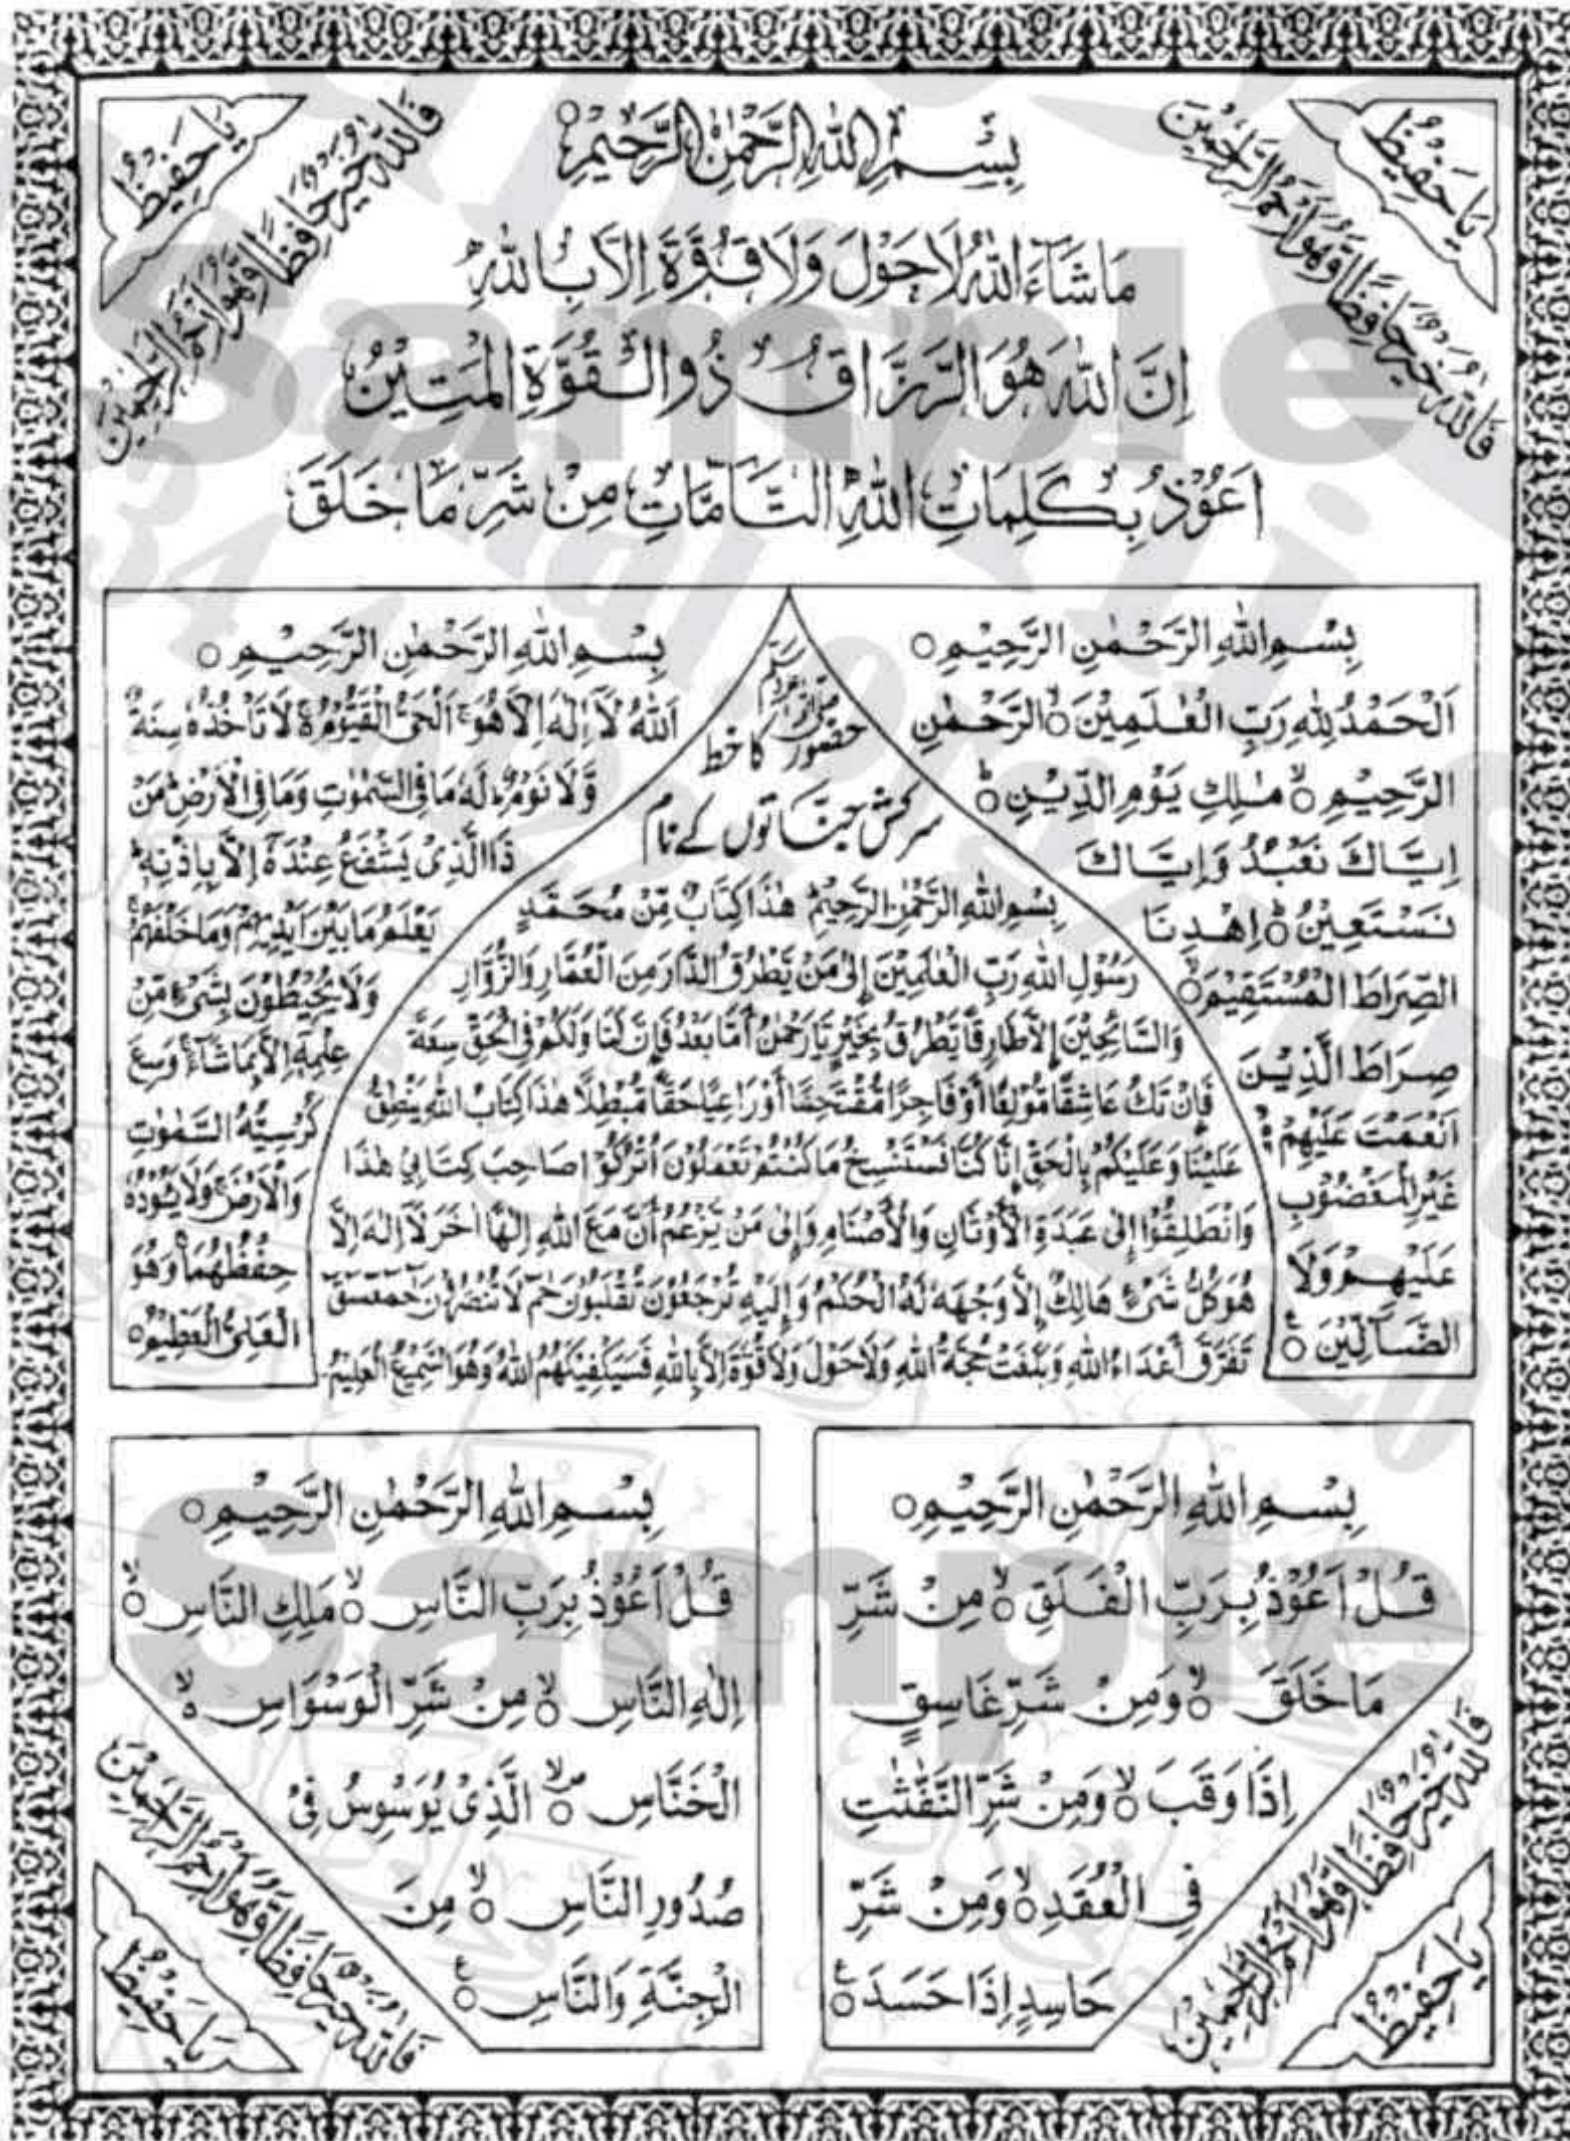 يَا حَفِيْظُ
فَاللّٰهُ خَيْرٌ حَافِظًا وَّهُوَ اَرْحَمُ الرَّاحِمِيْنَ
يَا حَفِيْظُ
فَاللّٰهُ خَيْرٌ حَافِظًا وَّهُوَ اَرْحَمُ الرَّاحِمِيْنَ
بِسْمِ اللّٰهِ الرَّحْمٰنِ الرَّحِيْمِ
مَا شَآءَ اللّٰهُ لَا حَوْلَ وَلَا قُوَّةَ اِلَّا بِاللّٰهِ
اِنَّ اللّٰهَ هُوَ الرَّزَّاقُ ذُو الْقُوَّةِ الْمَتِيْنُ
اَعُوْذُ بِكَلِمَاتِ اللّٰهِ التَّآمَّاتِ مِنْ شَرِّ مَا خَلَقَ
Sample
بِسْمِ اللّٰهِ الرَّحْمٰنِ الرَّحِيْمِ
اَلْحَمْدُ لِلّٰهِ رَبِّ الْعٰلَمِيْنَ الرَّحْمٰنِ
الرَّحِيْمِ مٰلِكِ يَوْمِ الدِّيْنِ
اِيَّاكَ نَعْبُدُ وَاِيَّاكَ
نَسْتَعِيْنُ اِهْدِنَا
الصِّرَاطَ الْمُسْتَقِيْمَ
صِرَاطَ الَّذِيْنَ
اَنْعَمْتَ عَلَيْهِمْ
غَيْرِ الْمَغْضُوْبِ
عَلَيْهِمْ وَلَا
الضَّآلِّيْنَ
حضور صلی اللہ علیہ وسلم کا خط
سرکش جناتوں کے نام
بِسْمِ اللّٰهِ الرَّحْمٰنِ الرَّحِيْمِ هٰذَا كِتَابٌ مِّنْ مُحَمَّدٍ
رَسُوْلِ اللّٰهِ رَبِّ الْعٰلَمِيْنَ اِلٰى مَنْ يَّطْرُقُ الدَّارَ مِنَ الْعُمَّارِ وَالزُّوَّارِ
وَالسَّائِحِيْنَ اِلَّا طَارِقًا يَّطْرُقُ بِخَيْرٍ يَا رَحْمٰنُ اَمَّا بَعْدُ فَاِنَّ لَنَا وَلَكُمْ فِى الْحَقِّ سِعَةً
فَاِنْ تَكُ عَاشِقًا مُّوْلِعًا اَوْ فَاجِرًا مُّقْتَحِمًا اَوْ رَاعِيًا حَقًّا مُّبْطِلًا هٰذَا كِتَابُ اللّٰهِ يَنْطِقُ
عَلَيْنَا وَعَلَيْكُمْ بِالْحَقِّ اِنَّا كُنَّا نَسْتَنْسِخُ مَا كُنْتُمْ تَعْمَلُوْنَ اُتْرُكُوْا صَاحِبَ كِتَابِيْ هٰذَا
وَانْطَلِقُوْا اِلٰى عَبَدَةِ الْاَوْثَانِ وَالْاَصْنَامِ وَاِلٰى مَنْ يَّزْعُمُ اَنَّ مَعَ اللّٰهِ اِلٰهًا اٰخَرَ لَا اِلٰهَ اِلَّا
هُوَ كُلُّ شَىْءٍ هَالِكٌ اِلَّا وَجْهَهٗ لَهُ الْحُكْمُ وَاِلَيْهِ تُرْجَعُوْنَ تُقْلَبُوْنَ حٰمٓ لَا تُنْصَرُوْنَ حٰمٓعٓسٓقٓ
تَفَرَّقَ اَعْدَاءُ اللّٰهِ وَبَلَغَتْ حُجَّةُ اللّٰهِ وَلَا حَوْلَ وَلَا قُوَّةَ اِلَّا بِاللّٰهِ فَسَيَكْفِيْكَهُمُ اللّٰهُ وَهُوَ السَّمِيْعُ الْعَلِيْمُ
بِسْمِ اللّٰهِ الرَّحْمٰنِ الرَّحِيْمِ
اَللّٰهُ لَآ اِلٰهَ اِلَّا هُوَ اَلْحَىُّ الْقَيُّوْمُ لَا تَاْخُذُهٗ سِنَةٌ
وَّلَا نَوْمٌ لَهٗ مَا فِى السَّمٰوٰتِ وَمَا فِى الْاَرْضِ مَنْ
ذَا الَّذِىْ يَشْفَعُ عِنْدَهٗٓ اِلَّا بِاِذْنِهٖ
يَعْلَمُ مَا بَيْنَ اَيْدِيْهِمْ وَمَا خَلْفَهُمْ
وَلَا يُحِيْطُوْنَ بِشَىْءٍ مِّنْ
عِلْمِهٖٓ اِلَّا بِمَا شَآءَ وَسِعَ
كُرْسِيُّهُ السَّمٰوٰتِ
وَالْاَرْضَ وَلَا يَـُٔوْدُهٗ
حِفْظُهُمَا وَهُوَ
الْعَلِىُّ الْعَظِيْمُ
بِسْمِ اللّٰهِ الرَّحْمٰنِ الرَّحِيْمِ
قُلْ اَعُوْذُ بِرَبِّ الْفَلَقِ مِنْ شَرِّ
مَا خَلَقَ وَمِنْ شَرِّ غَاسِقٍ
اِذَا وَقَبَ وَمِنْ شَرِّ النَّفّٰثٰتِ
فِى الْعُقَدِ وَمِنْ شَرِّ
حَاسِدٍ اِذَا حَسَدَ
بِسْمِ اللّٰهِ الرَّحْمٰنِ الرَّحِيْمِ
قُلْ اَعُوْذُ بِرَبِّ النَّاسِ مَلِكِ النَّاسِ
اِلٰهِ النَّاسِ مِنْ شَرِّ الْوَسْوَاسِ
الْخَنَّاسِ الَّذِىْ يُوَسْوِسُ فِىْ
صُدُوْرِ النَّاسِ مِنَ
الْجِنَّةِ وَالنَّاسِ
Sample
فَاللّٰهُ خَيْرٌ حَافِظًا وَّهُوَ اَرْحَمُ الرَّاحِمِيْنَ
يَا حَفِيْظُ
فَاللّٰهُ خَيْرٌ حَافِظًا وَّهُوَ اَرْحَمُ الرَّاحِمِيْنَ
يَا حَفِيْظُ